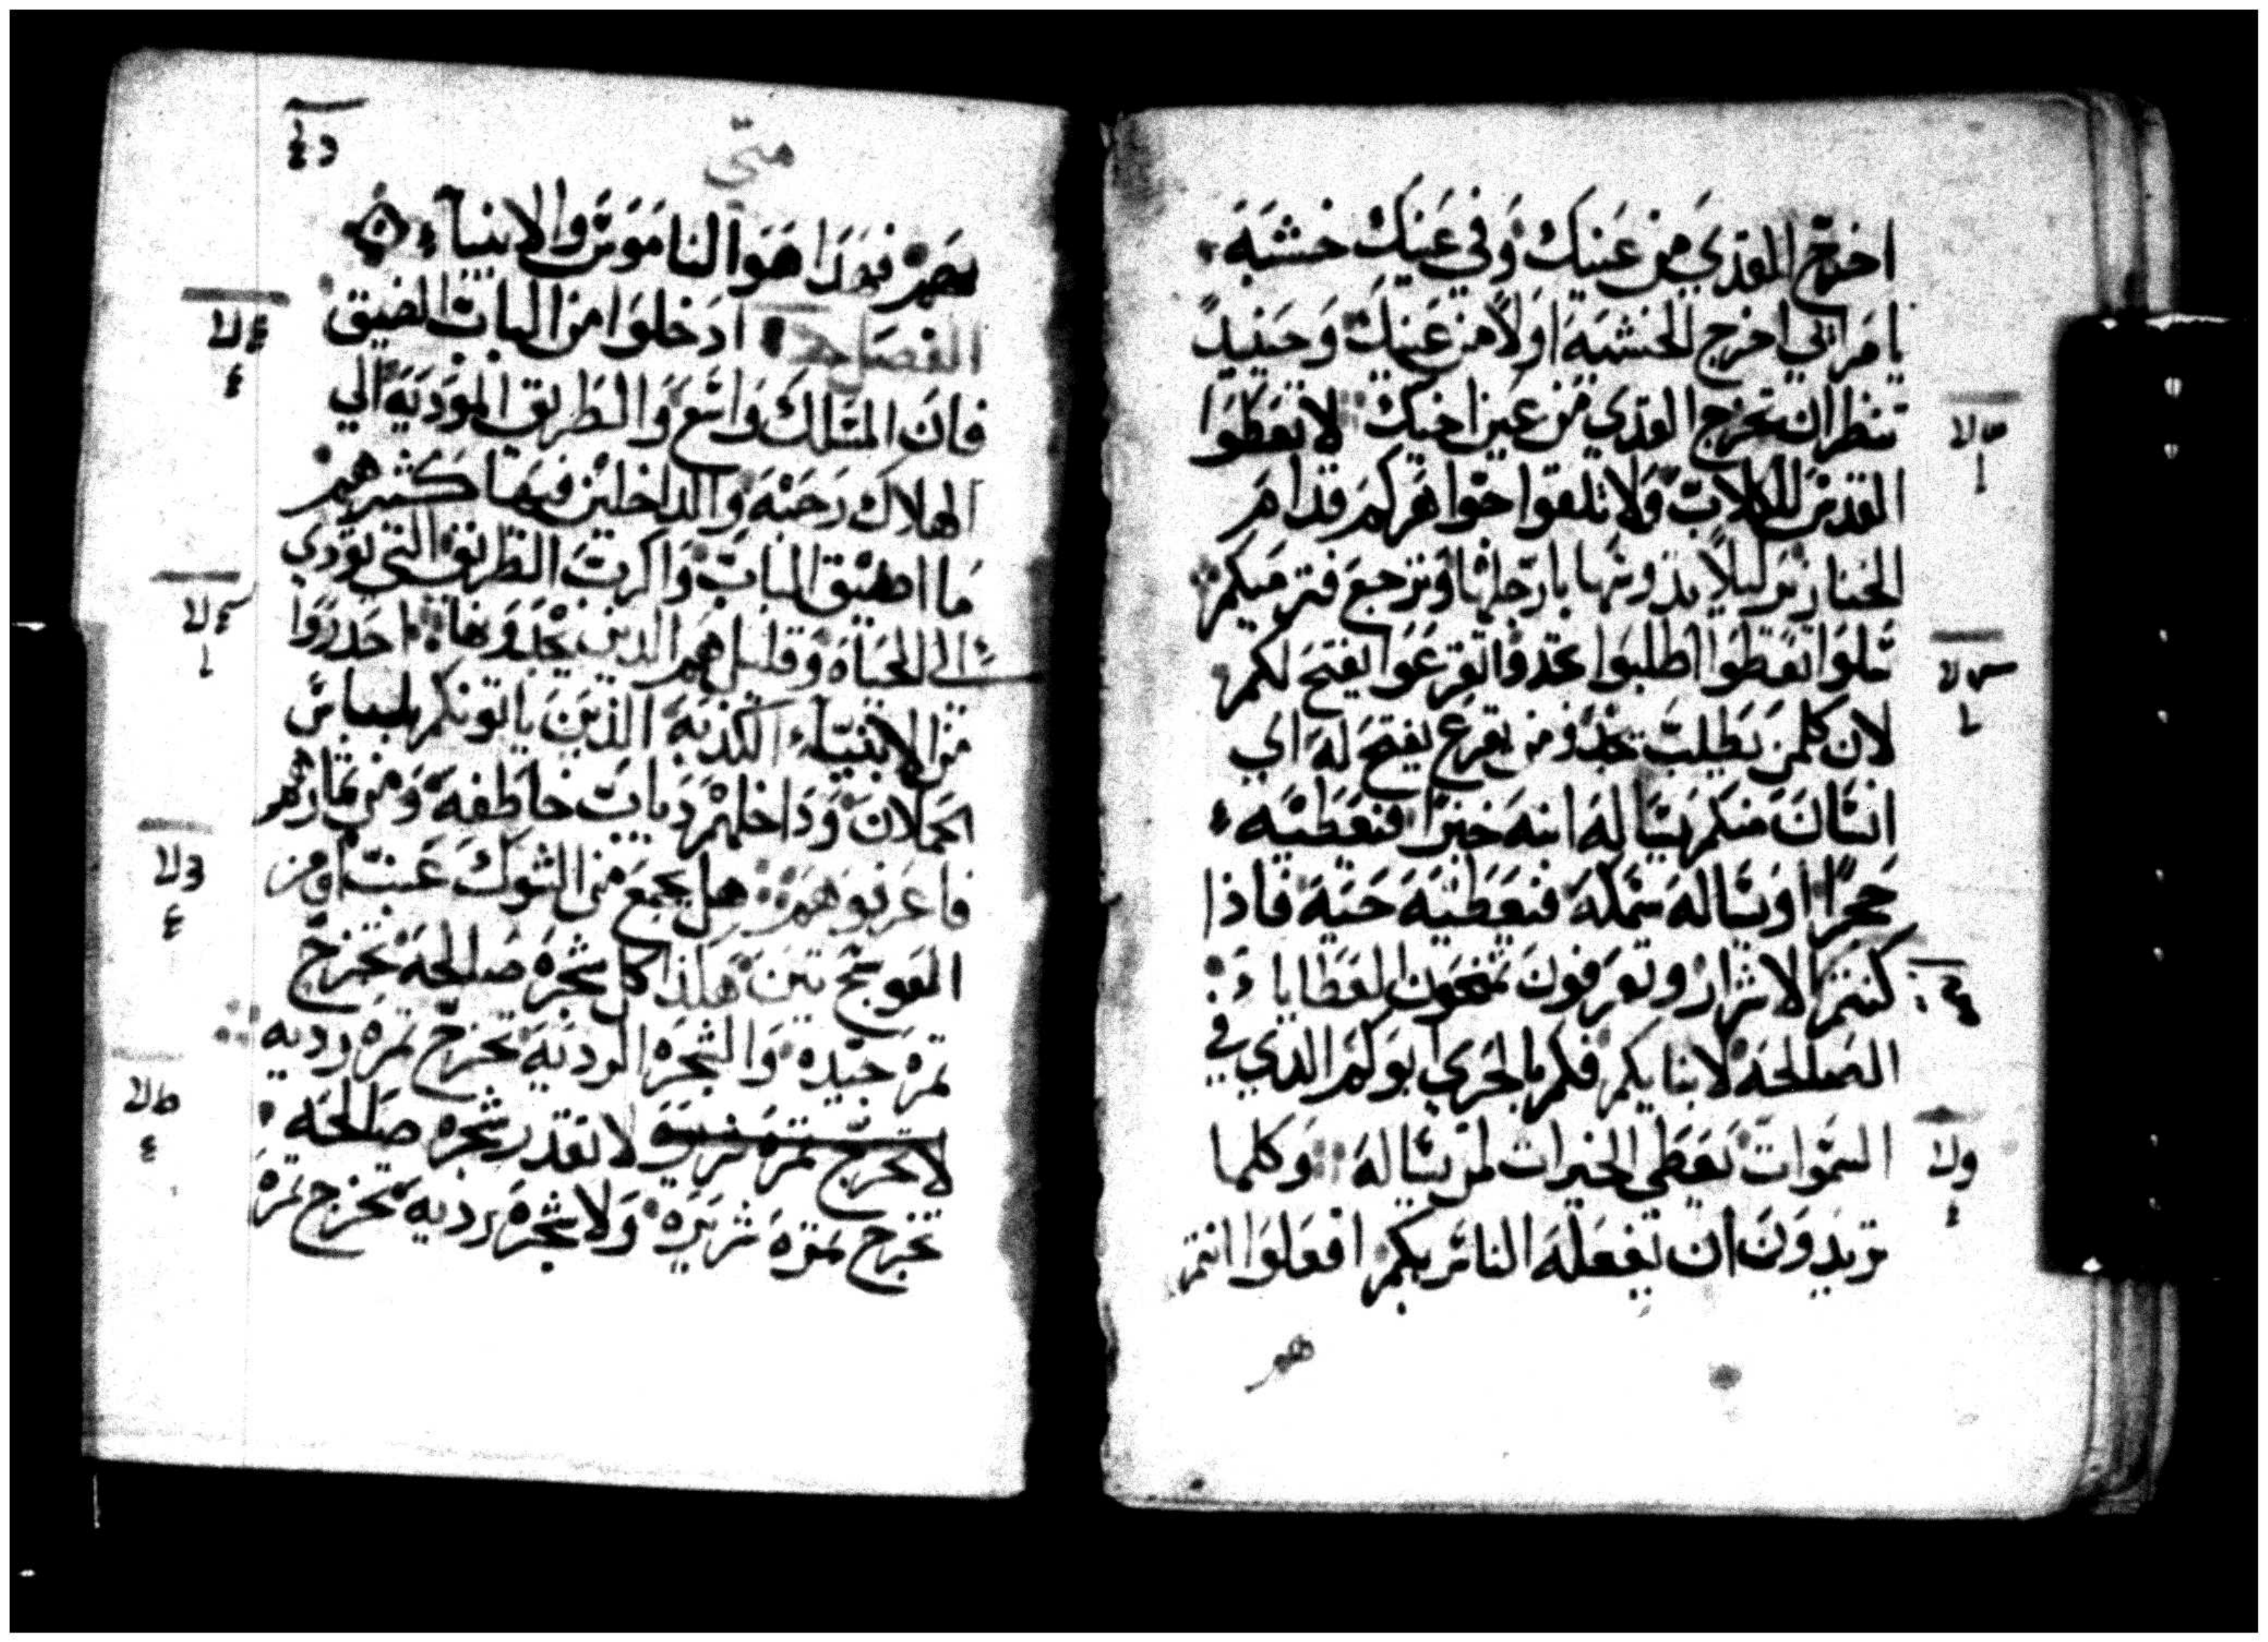 اخرج القدي من عينك وفي عينك خشبه
يا مرائي اخرج الخشبه اولا من عينك وحينيد
تنظر ان تخرج القدي من عين اخيك لا تعطوا
القدس للكلاب ولا تلقوا جواهركم قدام
الخنازير ليلا يدوسها بارجلها وترجع فتزميكم
سلوا تعطوا اطلبوا تجدوا اقرعوا يفتح لكم
لان كلمن يطلب يجد ومن يقرع يفتح له اي
انسان منكم يساله ابنه خبزا فيعطيه
حجرا او يساله سمكه فيعطيه حيه فاذا
كنتم الاشرار وتعرفون تمنحون العطايا
الصالحه لابنايكم فكم بالحري ابوكم الدي في
السموات يعطي الخيرات لمن يساله وكلما
تريدون ان يفعله الناس بكم افعلوا انتم
هو
متى
بهم فهدا هوا الناموس والانبياء
الفصل ادخلوا من الباب الضيق
فان المسلك واسع والطريق الموديه الي
الهلاك رحبه والداخلين فيها كثير هم
ما اضيق الباب واكرب الطريق التي تودي
الى الحياه وقليل هم الدين يجدونها احدروا
من الانبياء الكذبه الذين ياتونكم بلباس
الحملان وداخلهم دياب خاطفه ومن ثمارهم
فاعرفوهم هل يجمع من الشوك عنب او من
العوسج تين هكذا كل شجره صالحه تخرج
ثمره جيده والشجره الرديه تخرج ثمره رديه
لا تقدر شجره صالحه
تخرج ثمرة شريره ولا شجره رديه تخرج ثمره